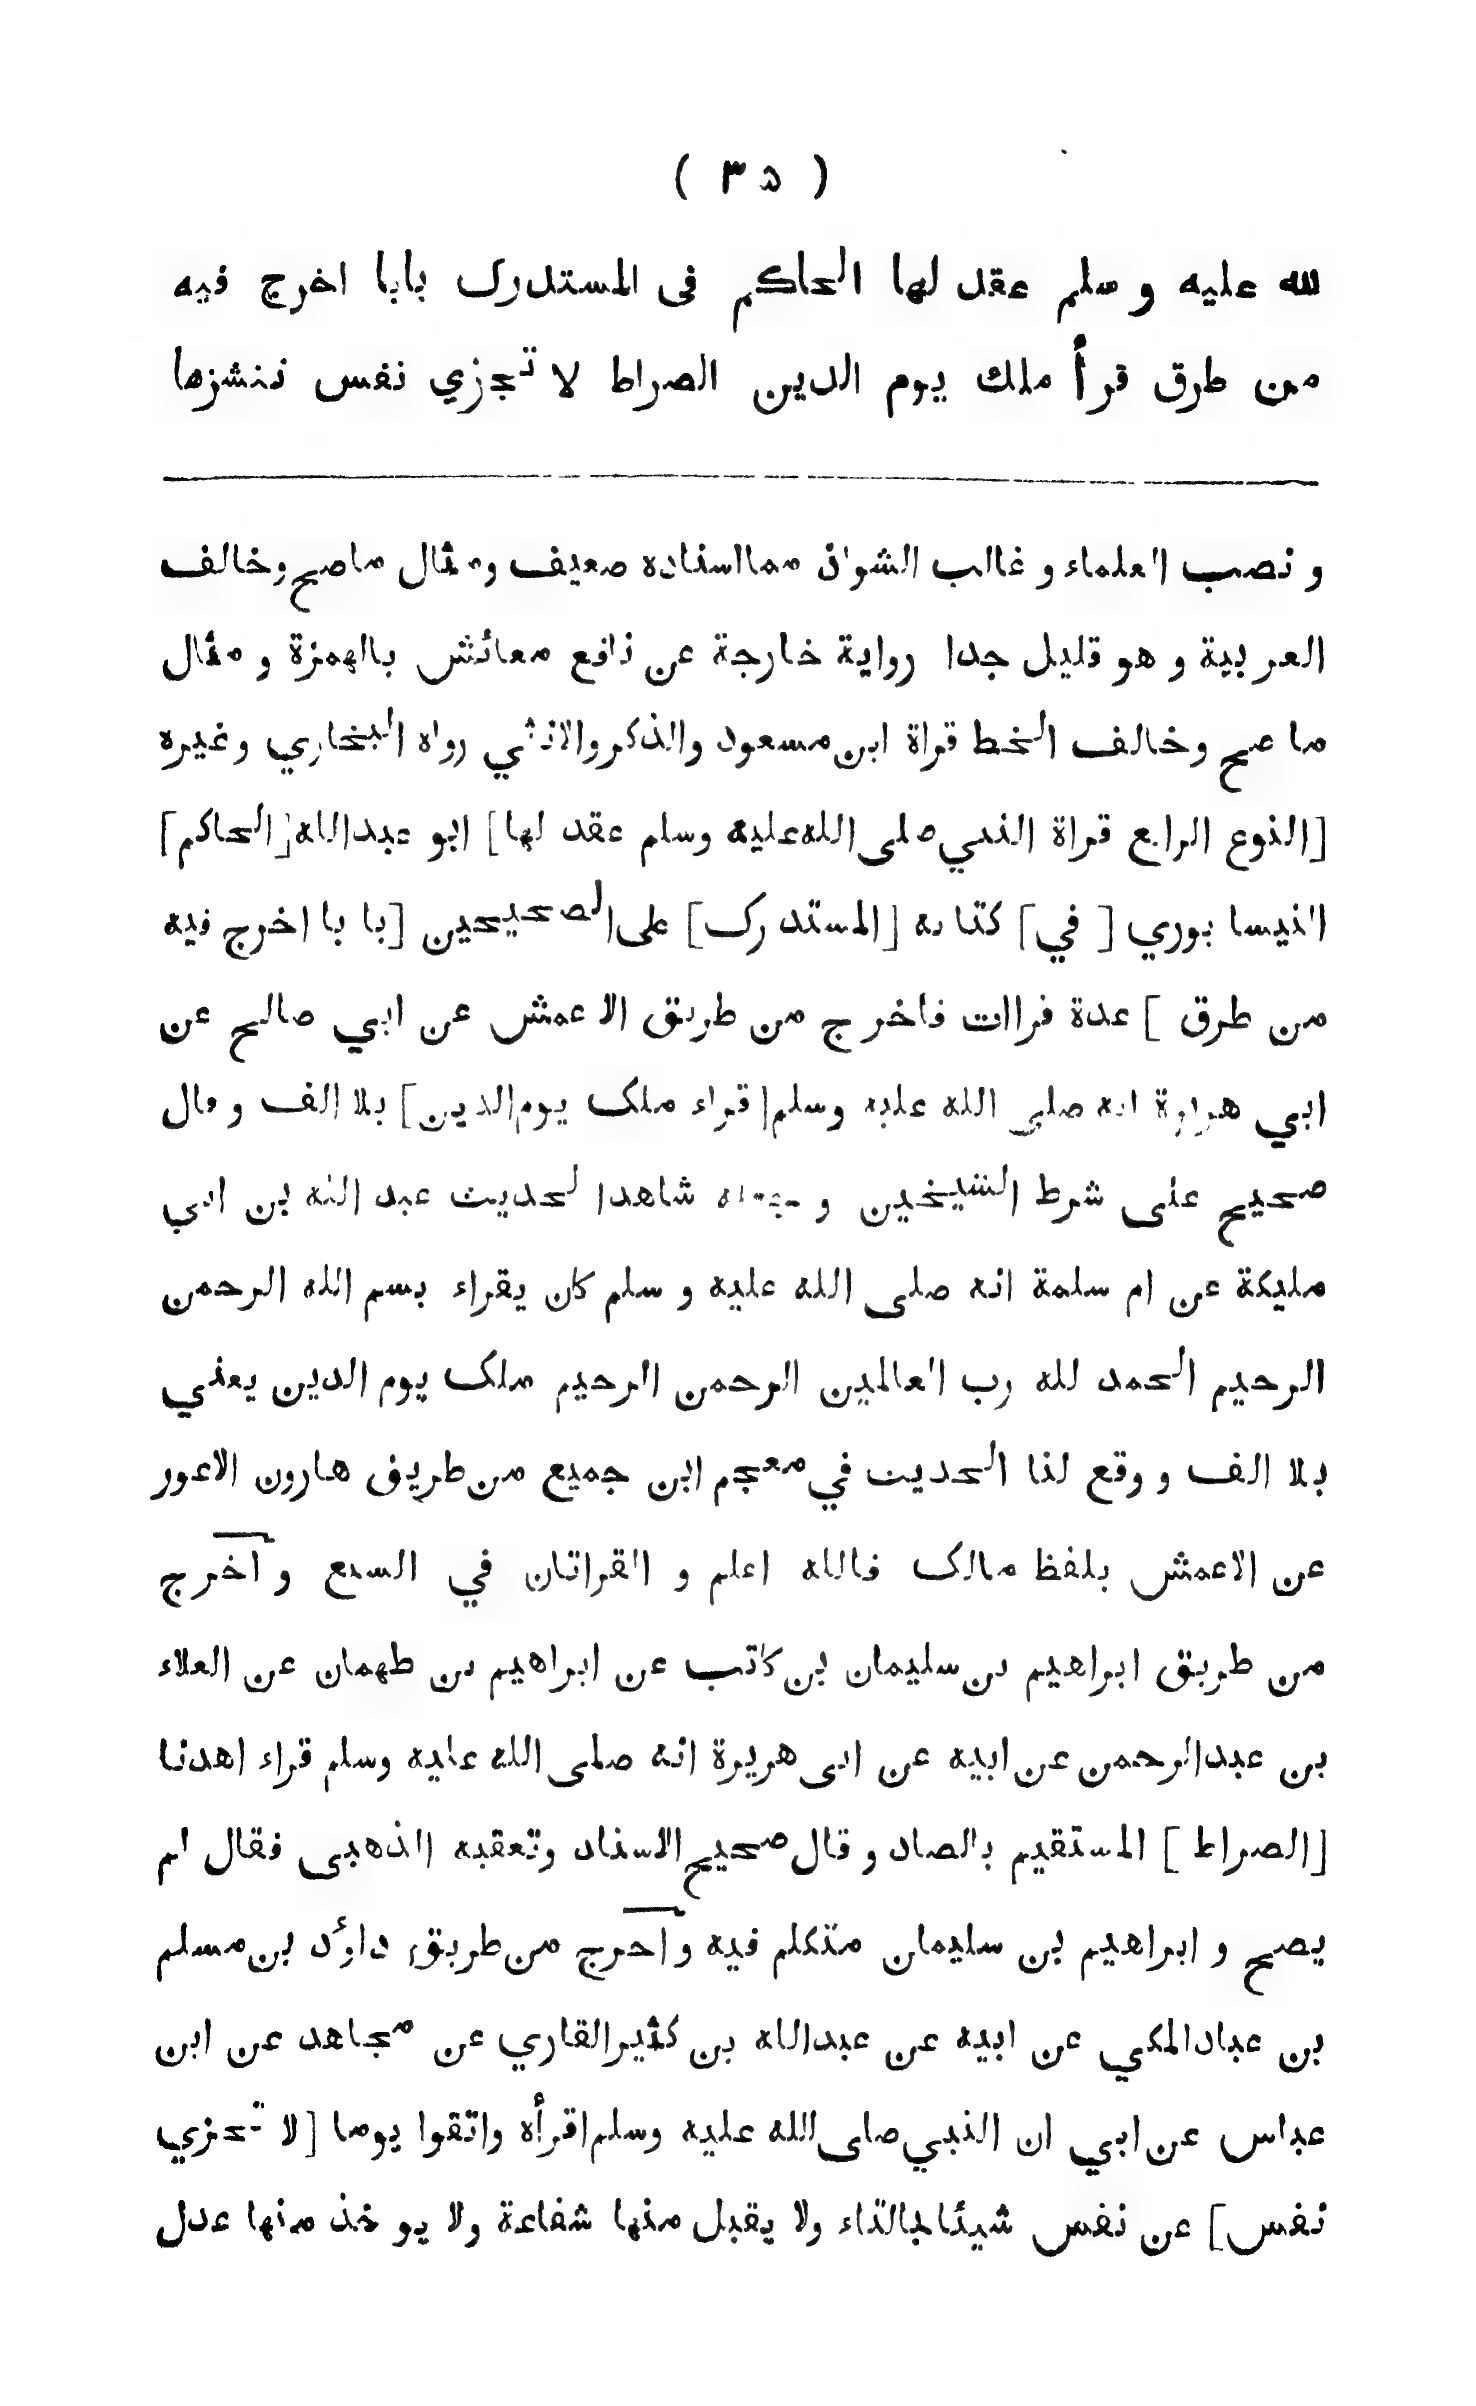 ( ٣٥ )
لله عليه و سلم عقد لها الحاكم فى المستدرك بابا اخرج فيه
من طرق قرأ ملك يوم الدين الصراط لا تجزي نفس ننشزها
و نصب العلماء و غالب الشواذ مما اسناده ضعيف ومثال ماصح وخالف
العربية و هو قليل جدا رواية خارجة عن نافع معائش بالهمزة و مثال
ما صح وخالف الخط قراة ابن مسعود والذكر والانثي رواه البخاري وغيره
[النوع الرابع قراة النبي صلى الله عليه وسلم عقد لها] ابو عبدالله [الحاكم]
النيسا بوري [ في ] كتابه [المستدرك] على الصحيحين [با با اخرج فيه
من طرق ] عدة قراات فاخرج من طريق الاعمش عن ابي صالح عن
ابي هريرة انه صلى الله عليه وسلم [قراء ملك يوم الدين] بلا الف و قال
صحيح على شرط الشيخين و شاهدا لحديث عبد الله بن ابي
مليكة عن ام سلمة انه صلى الله عليه و سلم كان يقراء بسم الله الرحمن
الرحيم الحمد لله رب العالمين الرحمن الرحيم ملك يوم الدين يعني
بلا الف و وقع لنا الحديث في معجم ابن جميع من طريق هارون الاعور
عن الاعمش بلفظ مالك فالله اعلم و القراتان في السبع و اخرج
من طريق ابراهيم بن سليمان بن كاتب عن ابراهيم بن طهمان عن العلاء
بن عبدالرحمن عن ابيه عن ابى هريرة انه صلى الله عليه وسلم قراء اهدنا
[الصراط ] المستقيم بالصاد و قال صحيح الاسناد وتعقبه الذهبى فقال لم
يصح و ابراهيم بن سليمان متكلم فيه و اخرج من طريق داؤد بن مسلم
بن عباد المكي عن ابيه عن عبدالله بن كثير القاري عن مجاهد عن ابن
عباس عن ابي ان النبي صلى الله عليه وسلم اقرأه واتقوا يوما [لا تجزي
نفس] عن نفس شيئا بالتاء ولا يقبل منها شفاعة ولا يو خذ منها عدل